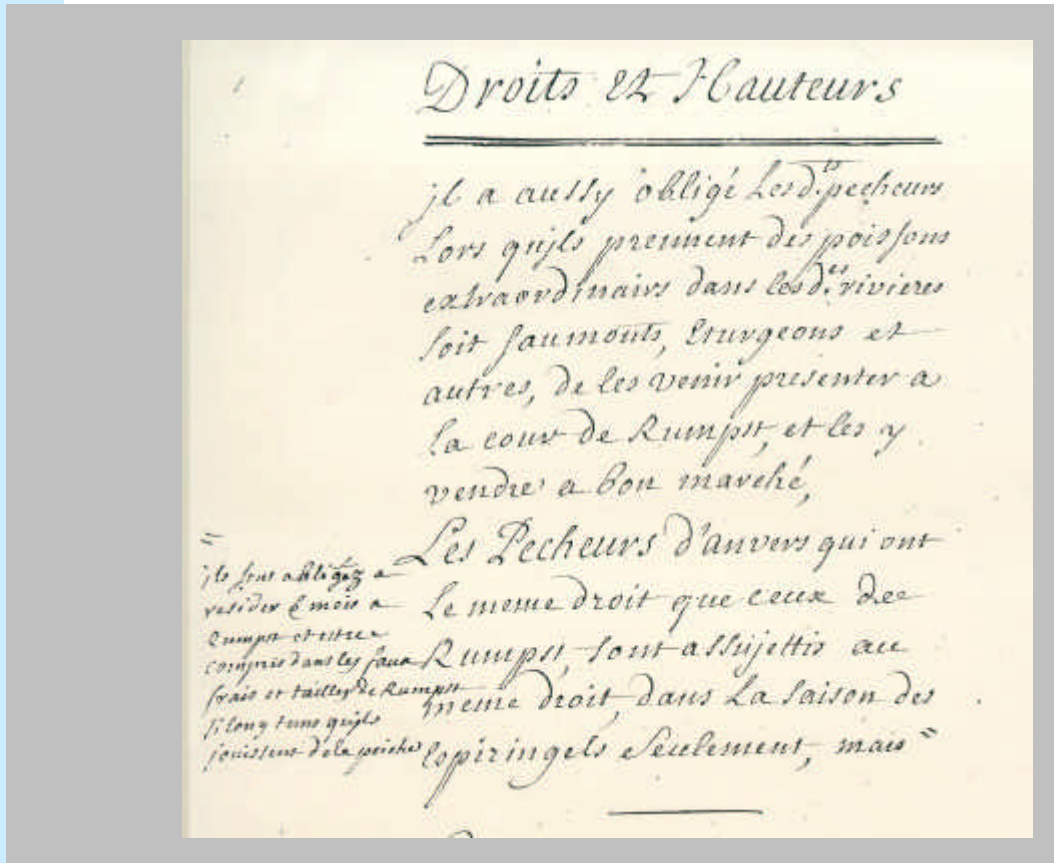 Droits et Hauteurs
jl a aussy obligé Les d.ts pecheurs
Lors qujls prennent des poissons
extraordinairs dans les d.es rivieres
soit saumonts, Eturgeons et
autres, de les venir presenter a
la cour de Rumpst, et les y
vendre a bon marché,
Les Pecheurs d'anvers qui ont
le meme droit que ceux de
Rumpst, sont assujettis au
meme droit, dans la saison des
spiringels seulement, mais =
=
jls sont obligez a
resider 6 mois a
Rumpst et estre
compris dans les faux
frais et tailles de Rumpst
si long tems qujls
jouissent de la peiche